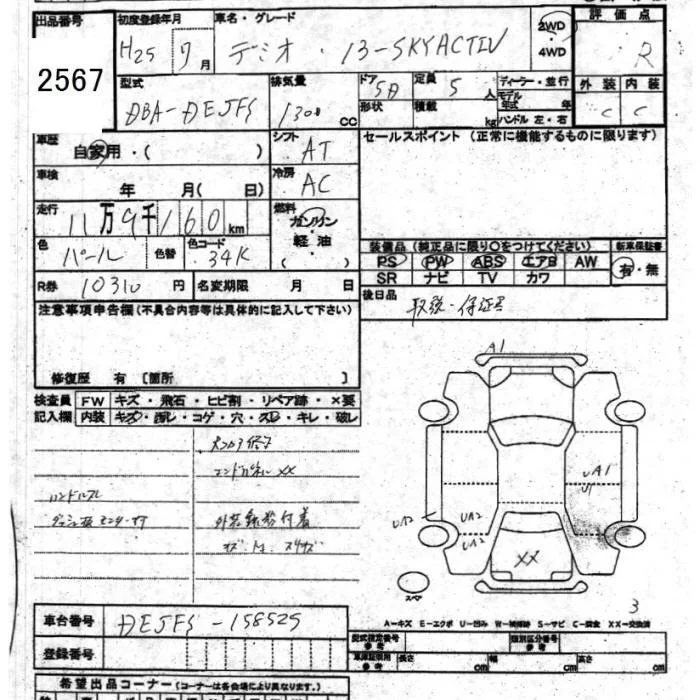 出品番号 初度登録年月 車名・グレード 2WD 評価点
2567 H25 7月 デミオ・13-SKYACTIV 4WD R
型式 排気量 ドア 5D 定員 5人 ディーラー・並行 外装 内装
DBA-DEJFS 1300cc 形状 積載 kg モデル年式 年 C C
ハンドル 左・右
車歴 自家用・( ) シフト AT セールスポイント (正常に機能するものに限ります)
車検 年 月( 日) 冷房 AC
走行 11万9千160km 燃料 ガソリン
色 パール 色替 色コード 34K 軽油 ( )
装備品 (純正品に限り○をつけてください) 新車保証書
PS PW ABS エアB AW 有・無
SR ナビ TV カワ
R券 10310円 名変期限 月 日 後日品 取説・保証書
注意事項申告欄(不具合内容等は具体的に記入して下さい)
修復歴 有 [箇所 ]
検査員 FW キズ・飛石・ヒビ割・リペア跡・×要
記入欄 内装 キズ・汚レ・コゲ・穴・スレ・キレ・破レ
エンドパネル XX
ハンドルスレ
A1
UA1
U1
UA2 UA2
UA2
XX
スペア
3
A=キズ E=エクボ U=凹み W=補修跡 S=サビ C=腐食 XX=交換済
車台番号 DEJFS-158525
登録番号
型式指定番号 参考 類別区分番号 参考
車庫証明用 参考 長さ cm 幅 cm 高さ cm
希望出品コーナー (コーナーは各会場により異なります。)